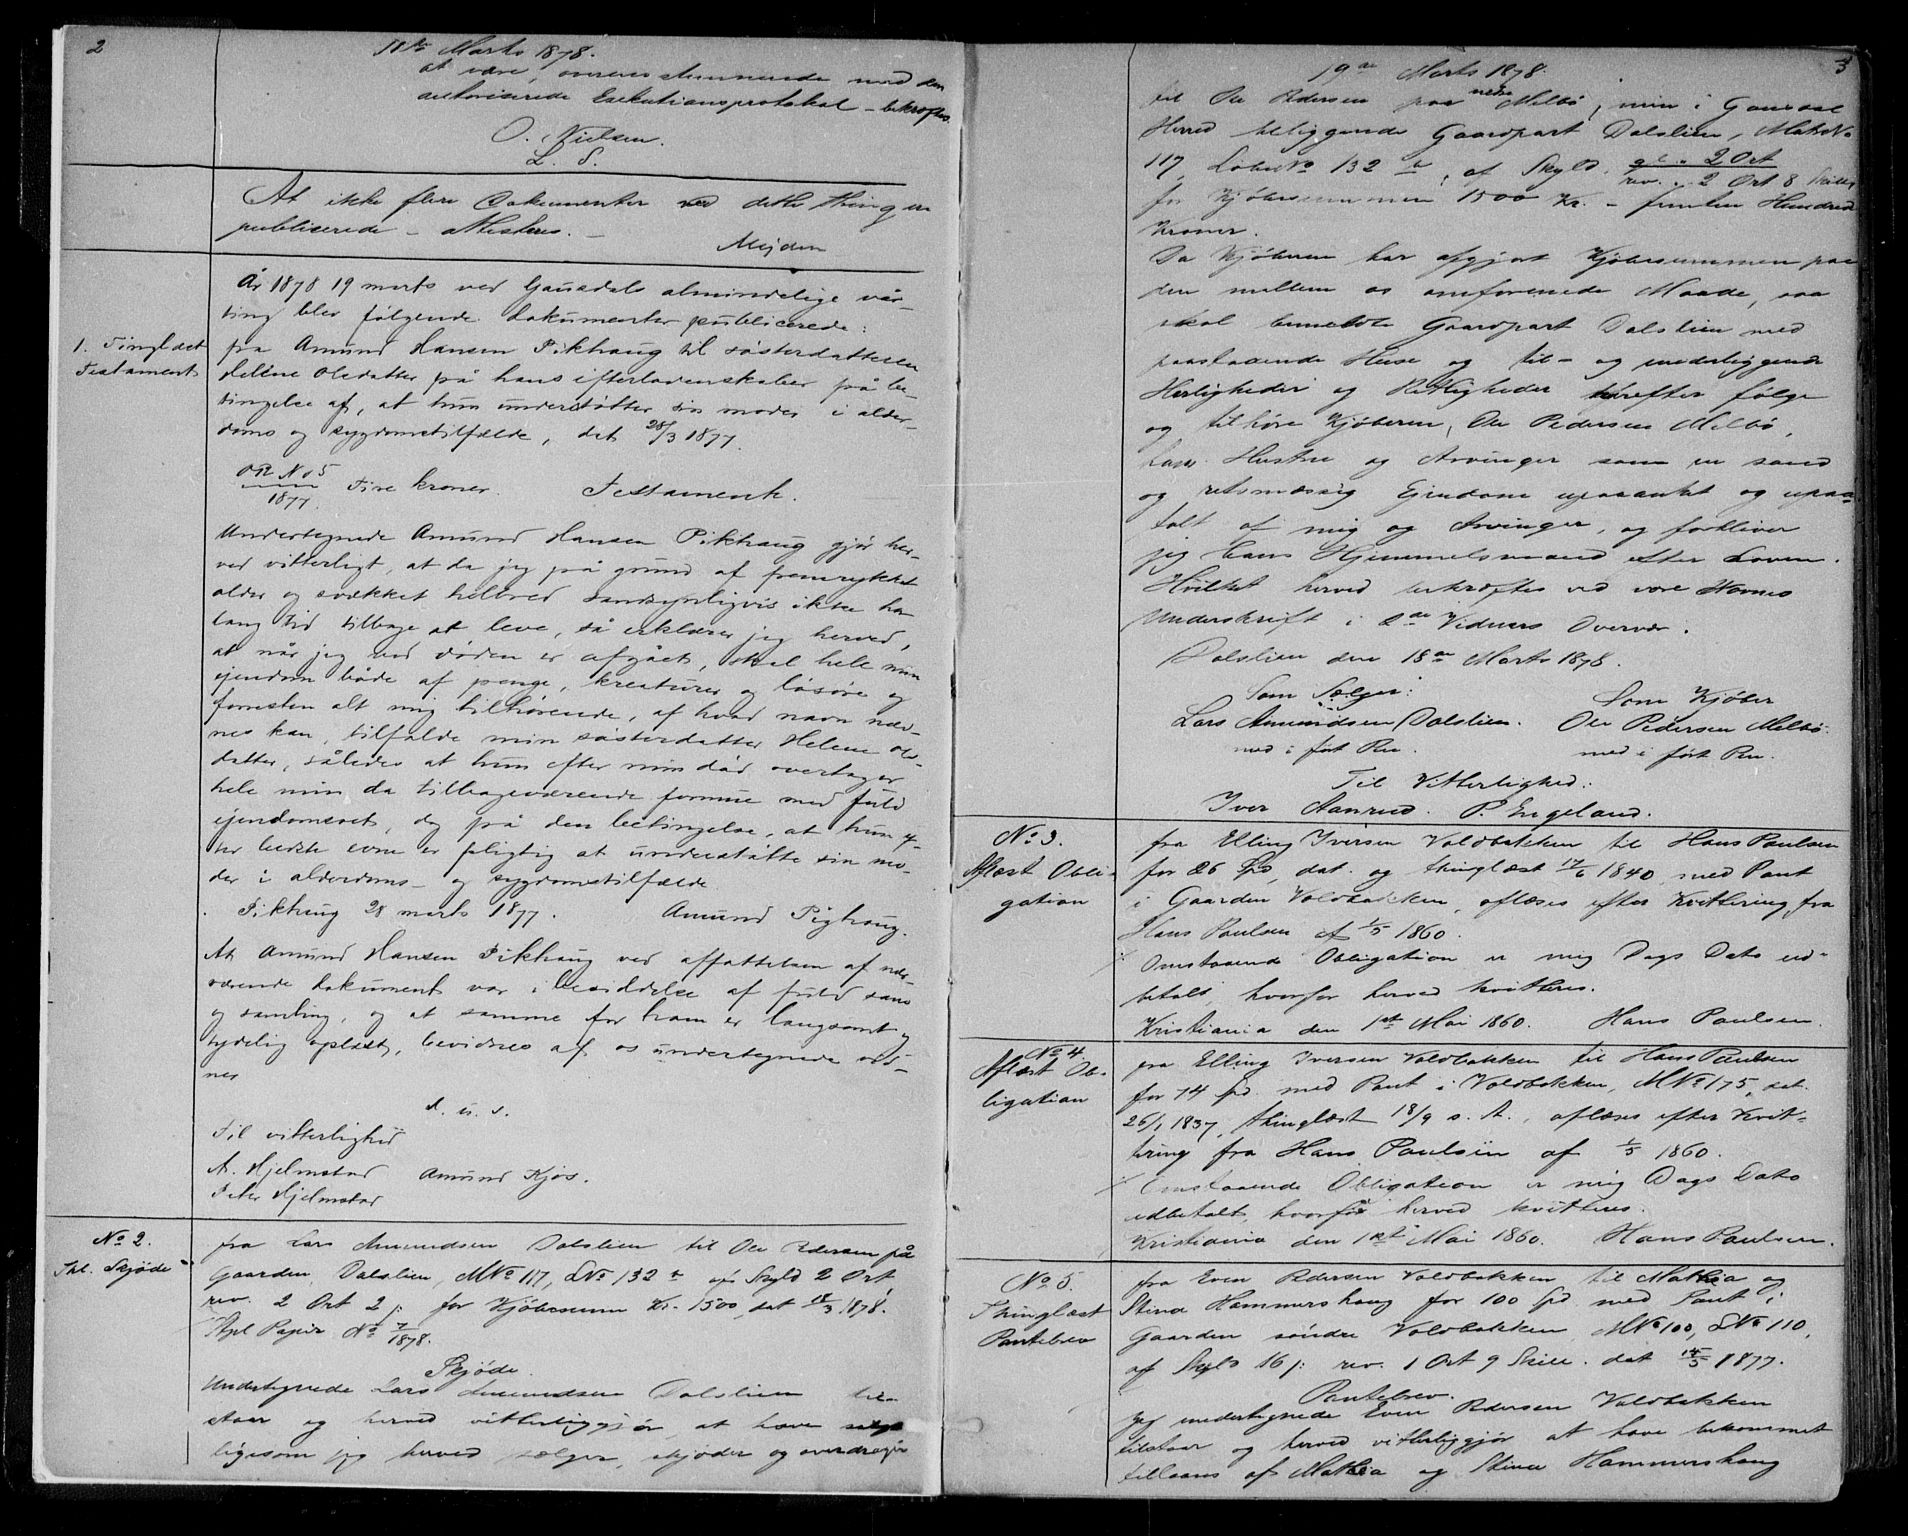 2
18de Marts 1878.
at være overensstemmende med den
autoriserede Exekutionsprotokol - bekræftes.
O. Nielsen.
L. S.
At ikke flere Dokumenter ved dette Thing er
publiserede - Attesteres. -
Mejdem
År 1878 19 marts ved Gausdals almindelige vår-
ting blev følgende dokumenter publicerede:
1. Tinglæst
Testament
fra Amund Hansen Pikhaug til søsterdatteren
Helene Olsdatter på hans efterladenskaber på be-
tingelse af, at hun understøtter sin moder i alder-
doms og sygdomstilfælde, dat 28/3 1877.
OR No 5
1877.
Fire kroner. Testament.
Undertegnede Amund Hansen Pikhaug gjør her-
ved vitterligt, at da jeg på grund af fremrykket
alder og svækket helbred sandsynligvis ikke har
lang tid tilbage at leve, så erklærer jeg herved,
at når jeg ved døden er afgået, skal hele min
ejendom både af penge, kreaturer og løsøre og
forresten alt mig tilhørende, af hvad navn næv-
nes kan, tilfalde min søsterdatter Helene Ols-
datter, således at hun efter min død overtager
hele min da tilbageværende formue med fuld
ejendomsret, dog på den betingelse, at hun ef-
ter bedste evne er pligtig at understøtte sin mo-
der i alderdoms- og sygdomstilfælde.
Pikhaug 28 marts 1877. Amund Pighaug.
At Amund Hansen Pikhaug ved affattelsen af nær-
værende dokument var i besiddelse af fuld sans
og samling, og at samme for ham er langsomt og
tydelig oplæst, bevidnes af os undertegnede vid-
ner
d. u. s.
Til vitterlighed
A. Hjelmstad Amund Kjøs.
Peter Hjelmstad
No 2.
Thl. Skjøde
fra Lars Amundsen Dalslien til Ole Pedersen på
Gaarden Dalslien, MNo 117, LNo 132 b af Skyld 2 Ort
rev. 2 Ort 2 ß. for Kjøbesum Kr. 1500, dat 18/3 1878.
Stpl Papir No 7/1878.
Skjøde.
Undertegnede Lars Amundsen Dalslien til-
staar og herved vitterliggjør, at have solgt
ligesom jeg herved sælger, skjøder og overdrager
19de Marts 1878.
3
til Ole Pedersen paa nedre Melbø, min i Gausdal
Herred beliggende Gaardpart Dalslien, MatrNo
117, LøbeNo 132 b, af Skyld gl. 2 Ort
rev. 2 Ort 8 Skill,
for Kjøbesummen 1500 Kr. - femten Hundrede
Kroner.
Da Kjøberen har afgjort Kjøbesummen paa
den mellem os omforenede Maade, saa
skal benævnte Gaardpart Dalslien med
paastaaende Huse og til- og underliggende
Herligheder og Rettigheder herefter følge
og tilhøre Kjøberen, Ole Pedersen Melbø,
hans Hustru og Arvinger som en sand
og retsmæssig Ejendom upaaanket og upaa-
talt af mig og Arvinger, og forbliver
jeg hans Hjemmelsmand efter Loven.
Hvilket herved bekræftes ved vore Navnes
Underskrift i 2de Vidners Overvær.
Dalslien den 18de Marts 1878.
Som Sælger: Som Kjøber
Lars Amundsen Dalslien. Ole Pedersen Melbø.
med i ført Pen. med i ført Pen.
Til Vitterlighed:
Iver Aanrud. P. Engeland.
No 3.
Aflæst Obli-
gation
fra Elling Iversen Voldbakken til Hans Paulsen
for 26 Spd, dat. og thinglæst 17/6 1840, med Pant
i Gaarden Voldbakken, aflæses efter Kvittering fra
Hans Paulsen af 1/5 1860.
Omstaaende Obligation er mig Dags Dato ud-
betalt, hvorfor herved kvitteres.
Kristiania den 1st Mai 1860. Hans Paulsen.
No 4.
Aflæst Ob-
ligation
fra Elling Iversen Voldbakken til Hans Paulsen
for 74 Spd. med Pant i Voldbakken, MNo 175, dat.
26/1 1837, thinglæst 18/9 s. A., aflæses efter Kvit-
tering fra Hans Paulsen af 1/5 1860.
Omstaaende Obligation er mig Dags Dato
udbetalt, hvorfor herved kvitteres.
Kristiania den 1st Mai 1860. Hans Paulsen.
No 5.
Thinglæst
Pantebrev
fra Even Pedersen Voldbakken til Mathia og
Stina Hammershaug for 100 Spd med Pant i
Gaarden søndre Voldbakken, MNo 100, LNo 110,
af Skyld 16 ß. rev. 1 Ort 9 Skill. dat 14/5 1877.
Pantebrev.
Jeg undertegnede Even Pedersen Voldbakken
tilstaar og herved vitterliggjør at have bekommet
tillaans af Mathia og Stina Hammershaug